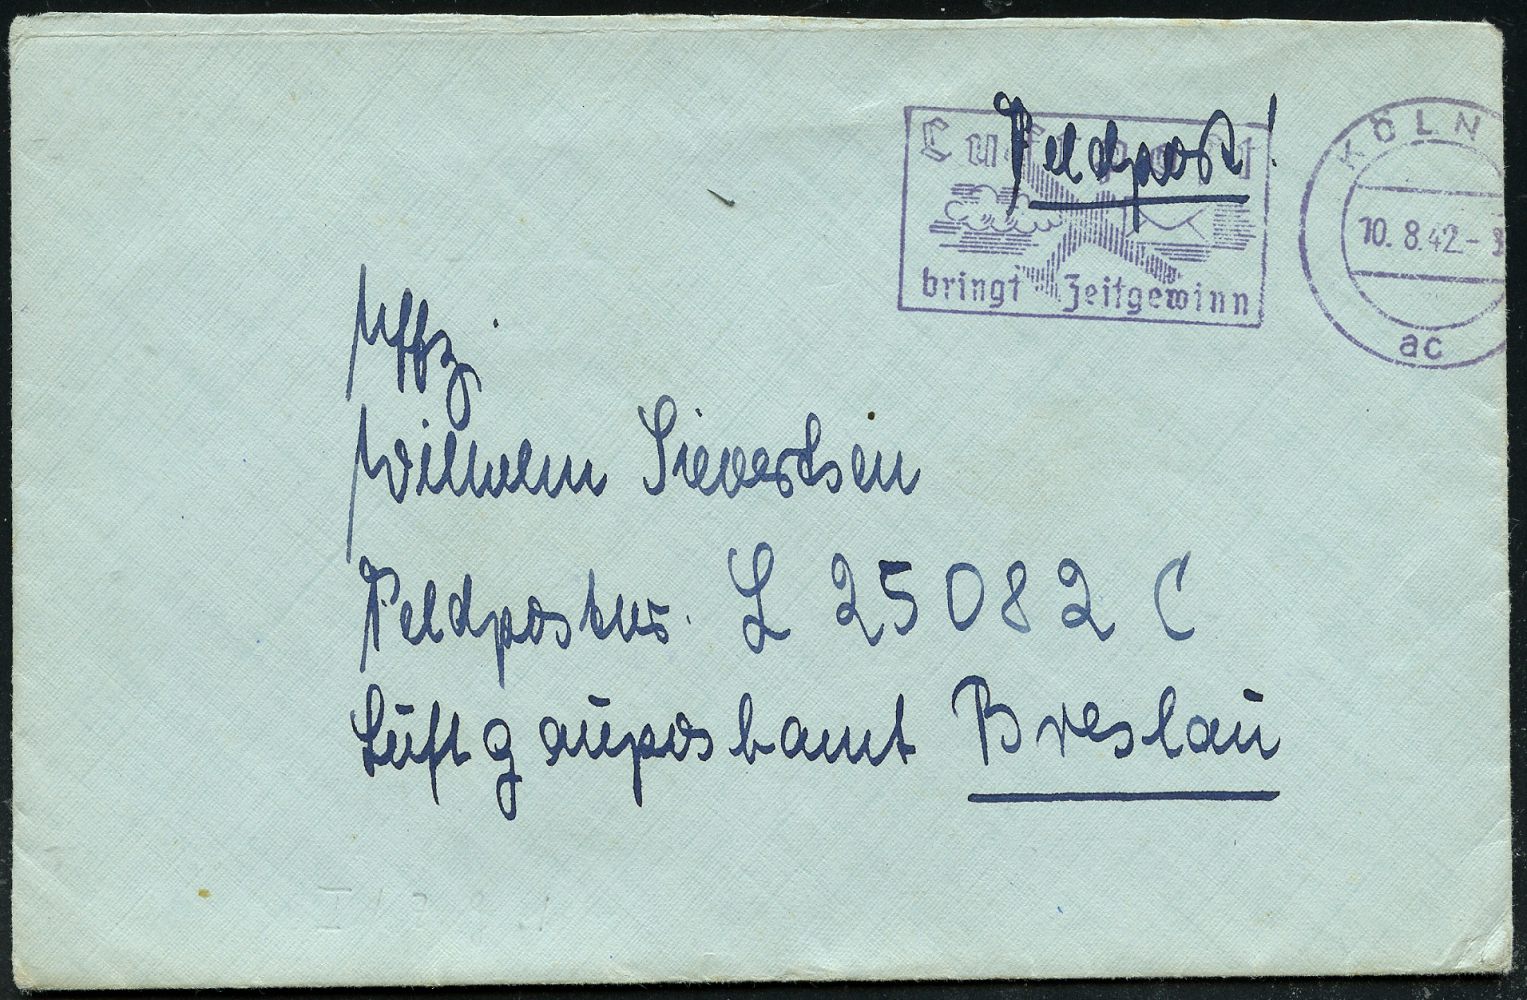 Feldpost!
Luftpost
bringt Zeitgewinn
KÖLN
10.8.42.-
ac
Uffz.
Wilhelm Sievertsen
Feldpostnr. L 25082 C
Luftgaupostamt Breslau